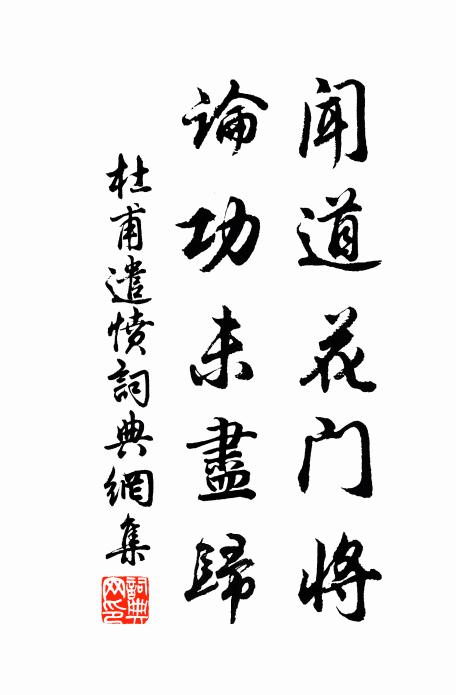 闻道花门将
論功未盡歸
杜甫遣憤詞典網集
詞典網印